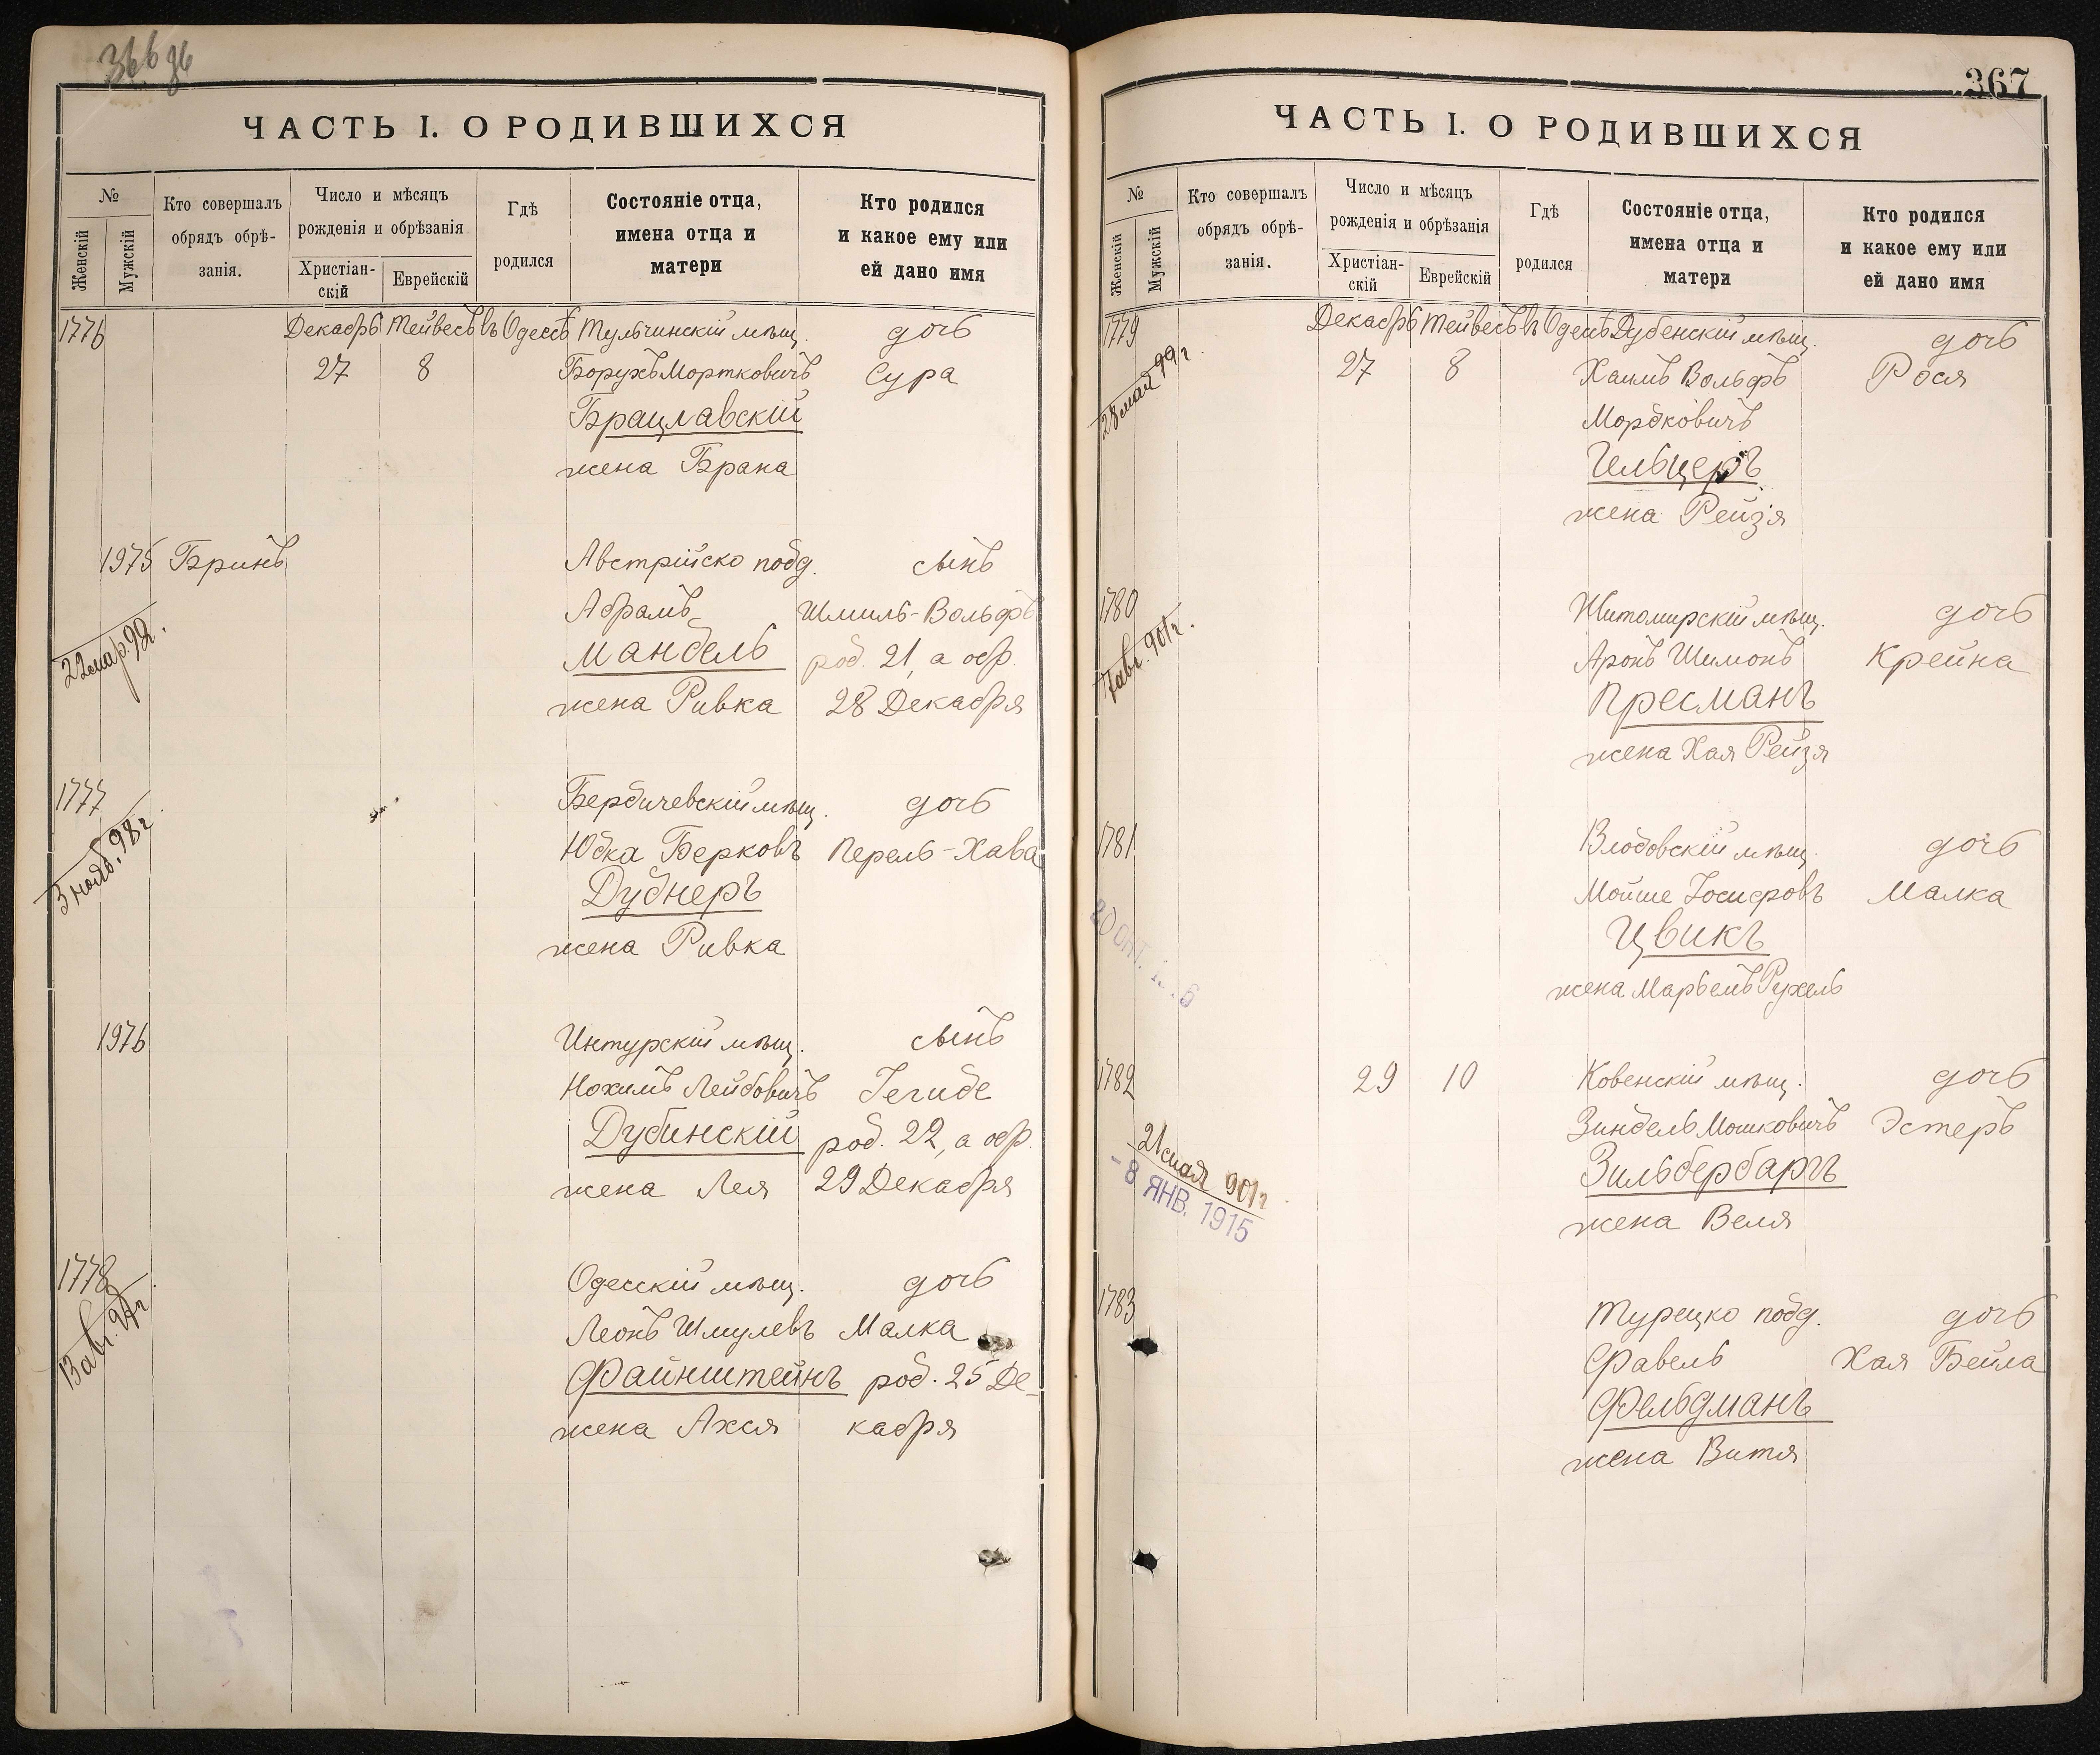 366 об
ЧАСТЬ I. О РОДИВШИХСЯ
№
Женскій
Мужскій
Кто совершалъ
обрядъ обрѣ-
занія.
Число и мѣсяцъ
рожденія и обрѣзанія
Христіан-
скій
Еврейскій
Гдѣ
родился
Состояніе отца,
имена отца и
матери
Кто родился
и какое ему или
ей дано имя
1776 Декабрь Тейвесъ въ Одессѣ Тульчинскій мѣщ. дочь
27 8 Борухъ Мортковичъ Сура
Брацлавскій
жена Брана
1975 Бринъ Австрійско подд. сынъ
Абрамъ Шмиль-Вольфъ
22 мар. 92. Мандель род. 21, а обр.
жена Ривка 28 Декабря
1777 Бердичевскій мѣщ. дочь
3 нояб. 98 г. Юдка Берковъ Перель-Хава
Дубнеръ
жена Ривка
1976 Интурскій мѣщ. сынъ
Нохимъ Лейбовичъ Іегиде
Дубинскій род. 22, а обр.
жена Лея 29 Декабря
1778 Одесскій мѣщ. дочь
13 авг. Леонъ Шмулевъ Малка
Файнштейнъ род. 25 Де-
жена Ахся кабря
367
ЧАСТЬ I. О РОДИВШИХСЯ
№
Женскій
Мужскій
Кто совершалъ
обрядъ обрѣ-
занія.
Число и мѣсяцъ
рожденія и обрѣзанія
Христіан-
скій
Еврейскій
Гдѣ
родился
Состояніе отца,
имена отца и
матери
Кто родился
и какое ему или
ей дано имя
1779 Декабрь Тейвесъ въ Одессѣ Дубенскій мѣщ. дочь
28 мая 99 г. 27 8 Хаимъ Вольфъ Рося
Мордковичъ
Гельцеръ
жена Рейзя
1780 Житомирскій мѣщ. дочь
7 авг. 901 г. Аронъ Шимонъ Крейна
Пресманъ
жена Хая Рейзя
1781 Влодовскій мѣщ. дочь
Мойше Іосифовъ Малка
20 ОКТ. Цвикъ
жена Марьемъ Рухель
1782 29 10 Ковенскій мѣщ. дочь
21 мая 901 г. Зиндель Мошковичъ Эстеръ
- 8 ЯНВ. 1915 Зильбербаргъ
жена Веля
1783 Турецко подд. дочь
Фавель Хая Бейла
Фельдманъ
жена Витя